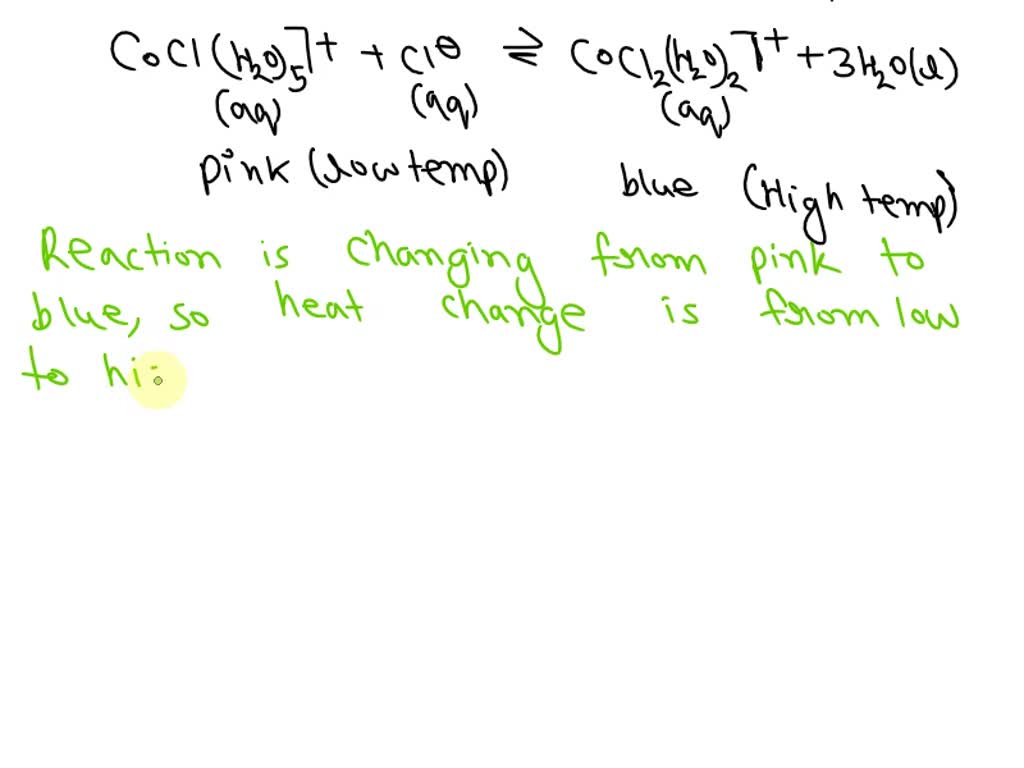 CoCl(H₂O)₅]⁺ + Cl⊖ ⇌ CoCl₂(H₂O)₂]⁺ + 3H₂O(l)
(aq) (aq) (aq)
pink (low temp) blue (High temp)
Reaction is changing from pink to
blue, so heat change is from low
to hi